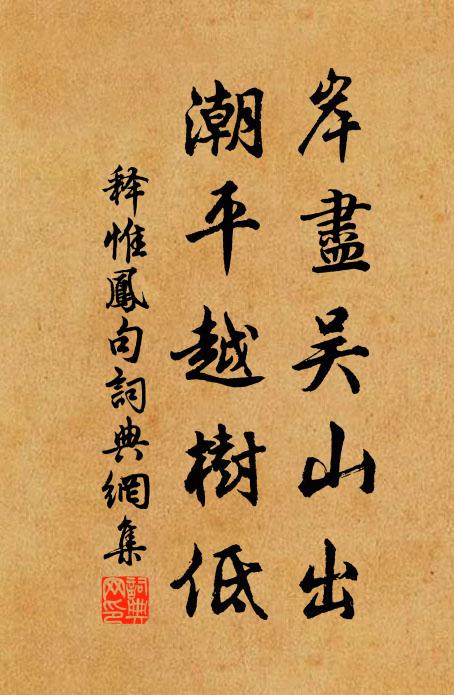 岸盡吴山出
潮平越樹低
释惟鳳句詞典網集
詞典網印